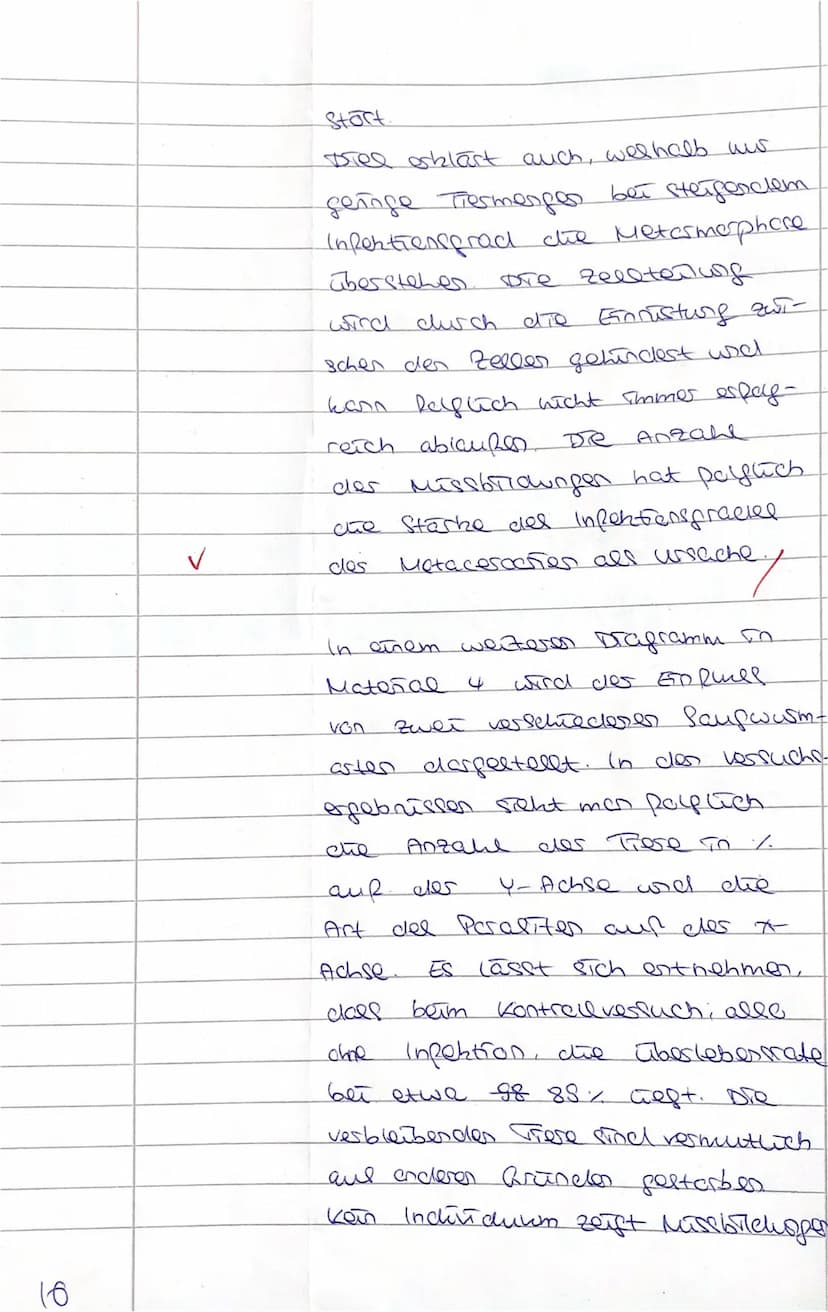 stört.
Dies erklärt auch, weshalb nur
geringe Tiermengen bei steigendem
Infektionsgrad die Metamorphose
überstehen. Die Zellteilung
wird durch die Einnistung zwi-
schen den Zellen gehindert und
kann folglich nicht immer erfolg-
reich ablaufen. Die Anzahl
der Missbildungen hat folglich
die Stärke des Infektionsgrades
der Metacercarien als Ursache.
In einem weiteren Diagramm in
Material 4 wird der Einfluss
von zwei verschiedenen Saugwurm-
arten dargestellt. In den Versuchs-
ergebnissen sieht man folglich
die Anzahl der Tiere in %
auf der Y-Achse und die
Art des Parasiten auf der x-
Achse. Es lässt sich entnehmen,
dass beim Kontrollversuch, also
ohne Infektion, die Überlebensrate
bei etwa 88% liegt. Die
verbleibenden Tiere sind vermutlich
aus anderen Gründen gestorben
Kein Individuum zeigt Missbildungen
16